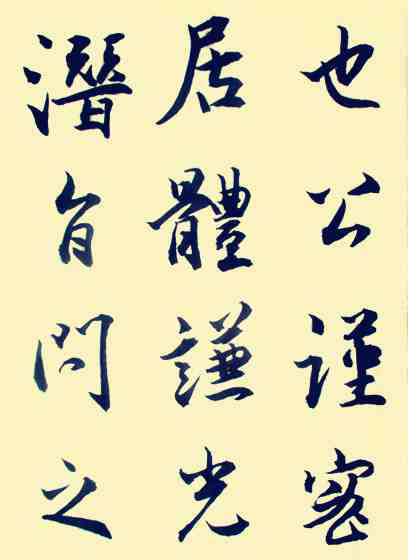 也公謹密
居體謙光
潛旨問之